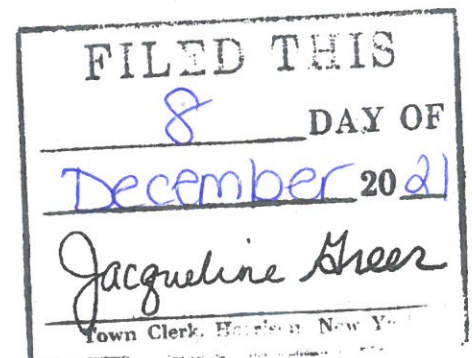 FILED THIS
8 DAY OF
December 20 21
Jacqueline Greer
Town Clerk, Harrison, New Y